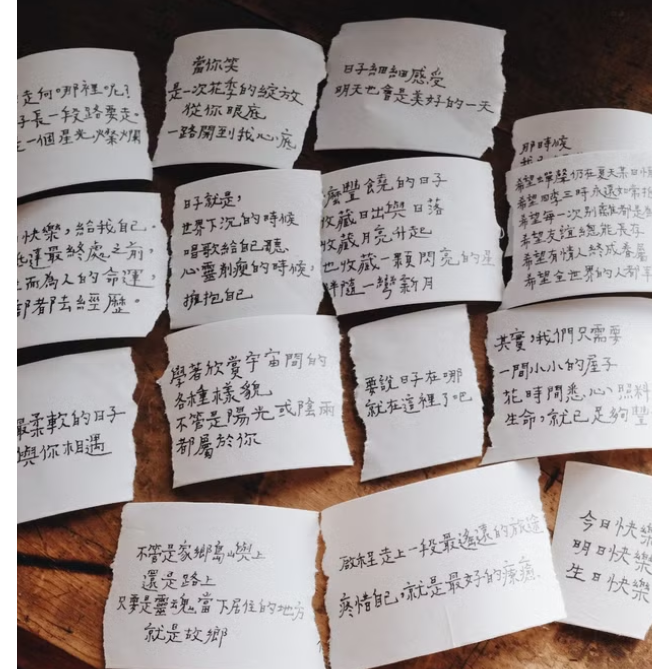 走向哪裡呢？
長一段路要走。
一個星光燦爛
當你笑
是一次花季的綻放
從你眼底
一路開到我心底
日子細細感受
明天也會是美好的一天
那時候
快樂，給我自己。
運最終處之前，
而為人的命運，
都去經歷。
日子就是，
世界下沉的時候
唱歌給自己聽
心靈刺痕的時候，
擁抱自己
麼豐饒的日子
收藏日出與日落
收藏月亮升起
也收藏一顆閃亮的星
伴隨一彎新月
希望蟬聲仍在夏天
希望四季三時永遠如常
希望每一次別離都是
希望友誼總能長存
希望有情人終成眷屬
希望全世界的人都
最柔軟的日子
與你相遇
學著欣賞宇宙間的
各種樣貌
不管是陽光或陰雨
都屬於你
要說日子在哪
就在這裡了吧
其實，我們只需要
一間小小的屋子
花時間悉心照料
生命，就已足夠豐
不管是家鄉島嶼上
還是路上
只要是靈魂當下居住的地方
就是故鄉
啟程走上一段最遙遠的旅途
疼惜自己，就是最好的療癒
今日快樂
明日快樂
生日快樂